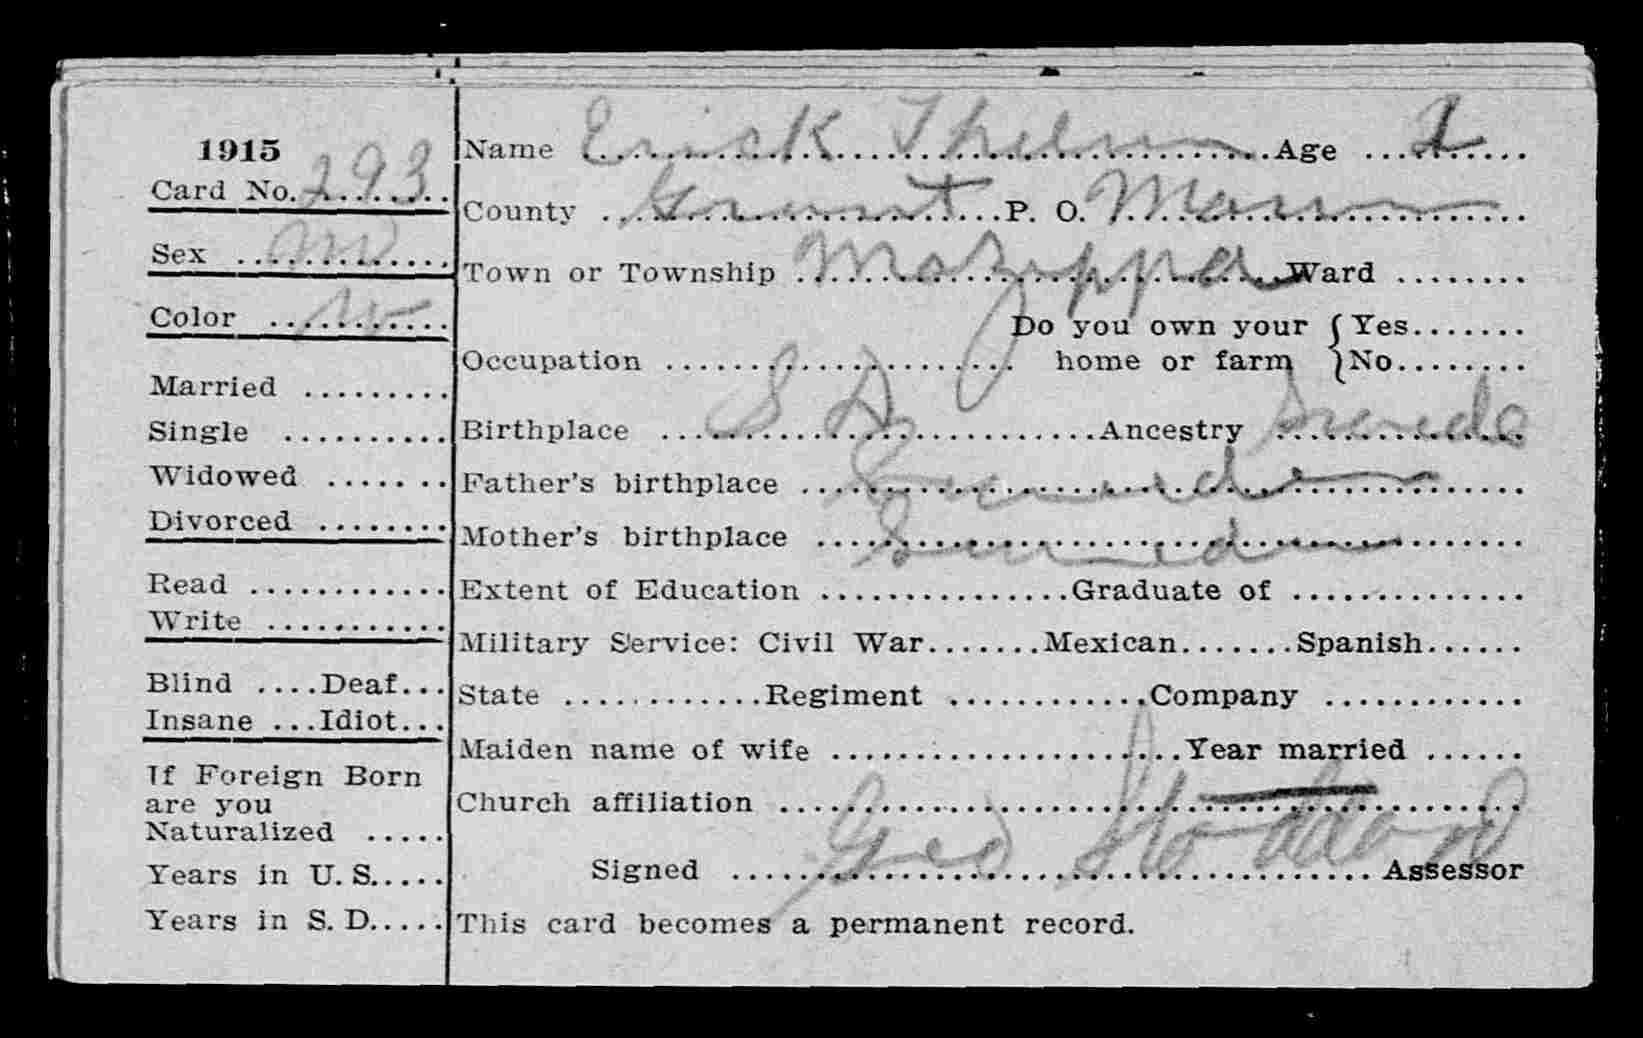 1915
Card No. 293
Sex M
Color W
Married
Single
Widowed
Divorced
Read
Write
Blind ....Deaf...
Insane ...Idiot...
If Foreign Born
are you
Naturalized
Years in U. S.
Years in S. D.
Name Erick Age 2
County Grant P. O.
Town or Township Mazeppa Ward
Do you own your home or farm { Yes
No
Occupation
Birthplace S D Ancestry Swede
Father's birthplace Sweden
Mother's birthplace Sweden
Extent of Education Graduate of
Military Service: Civil War Mexican Spanish
State Regiment Company
Maiden name of wife Year married
Church affiliation
Signed Geo Stoddard Assessor
This card becomes a permanent record.